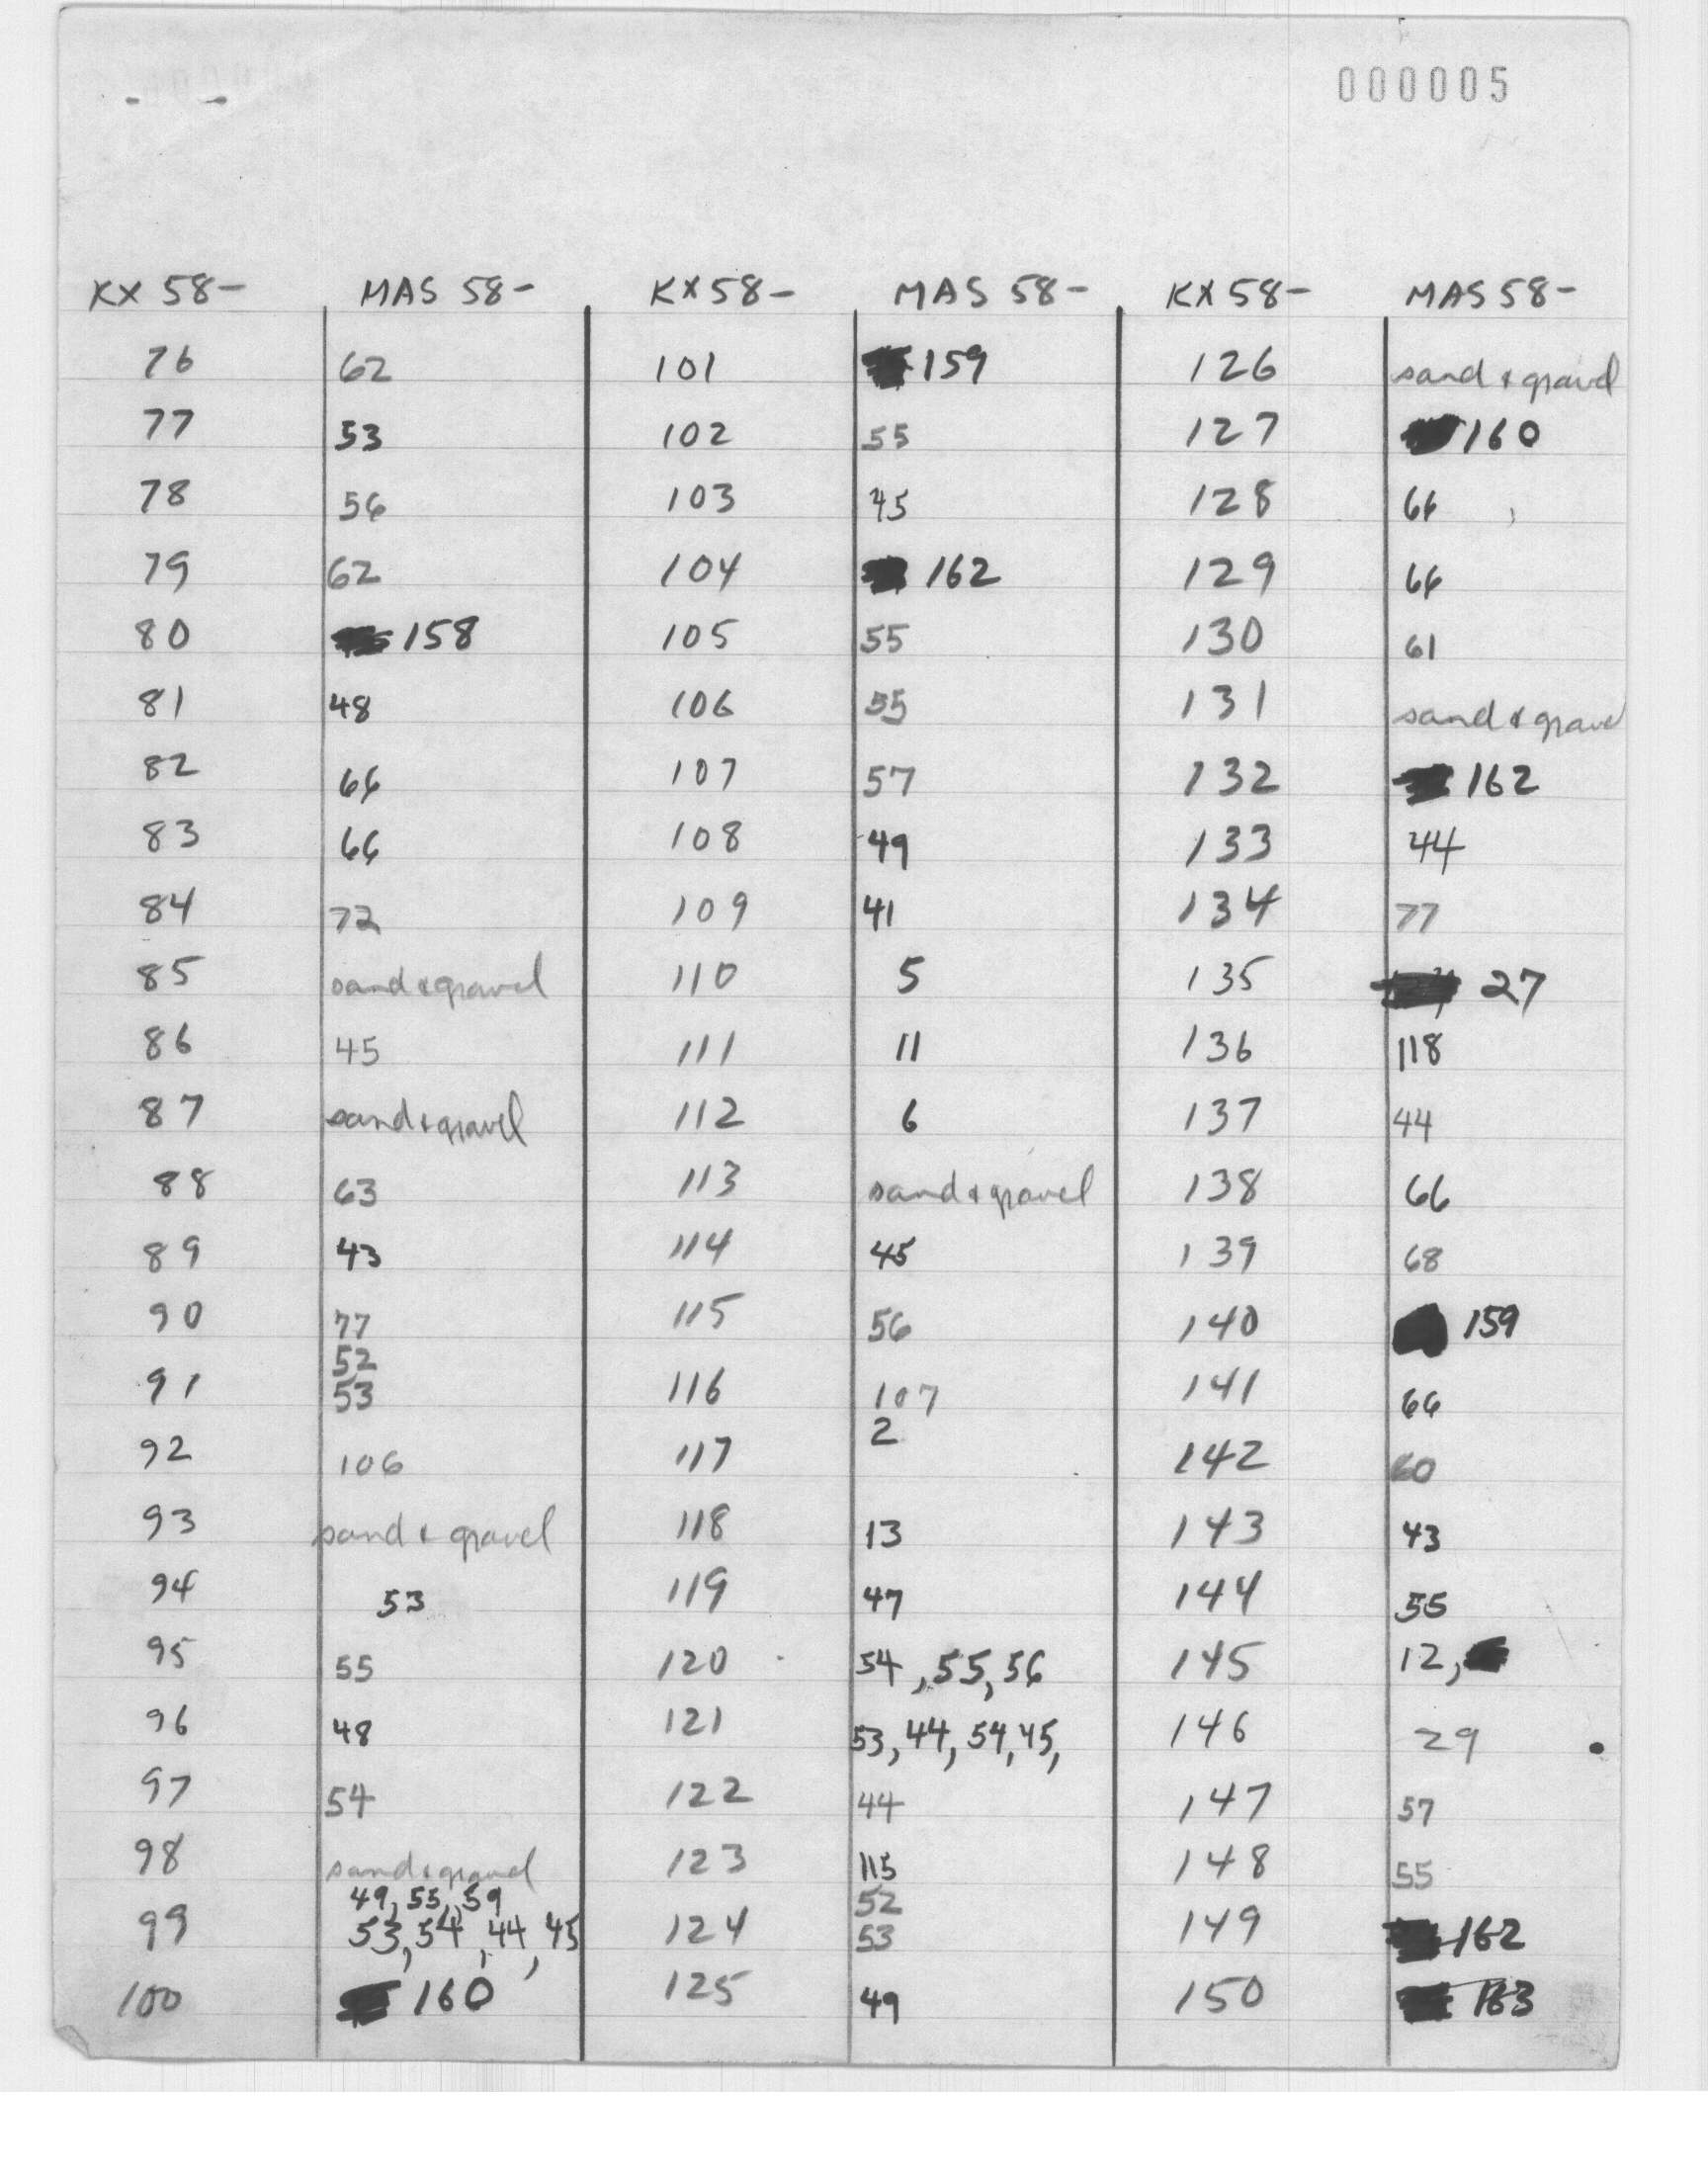 000005
KX 58- MAS 58- KX 58- MAS 58- KX 58- MAS 58-
76 62 101 159 126 sand & gravel
77 53 102 55 127 160
78 56 103 45 128 66
79 62 104 162 129 66
80 158 105 55 130 61
81 48 106 55 131 sand & gravel
82 66 107 57 132 162
83 66 108 49 133 44
84 72 109 41 134 77
85 sand & gravel 110 5 135 27
86 45 111 11 136 118
87 sand & gravel 112 6 137 44
88 63 113 sand & gravel 138 66
89 43 114 45 139 68
90 77 115 56 140 159
52
91 53 116 107 141 66
2
92 106 117 142 60
93 sand & gravel 118 13 143 43
94 53 119 47 144 55
95 55 120 54, 55, 56 145 12,
96 48 121 53, 44, 54, 45, 146 29
97 54 122 44 147 57
98 sand & gravel 123 115 148 55
49, 55, 59 52
99 53, 54, 44, 45 124 53 149 162
100 160 125 49 150 163